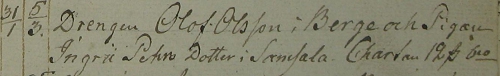 31/1 5/3. Drengen Olof Olsson i Berge och Pigan
Ingrid Pehrs Dotter i Samsala. Chartan 12 ß